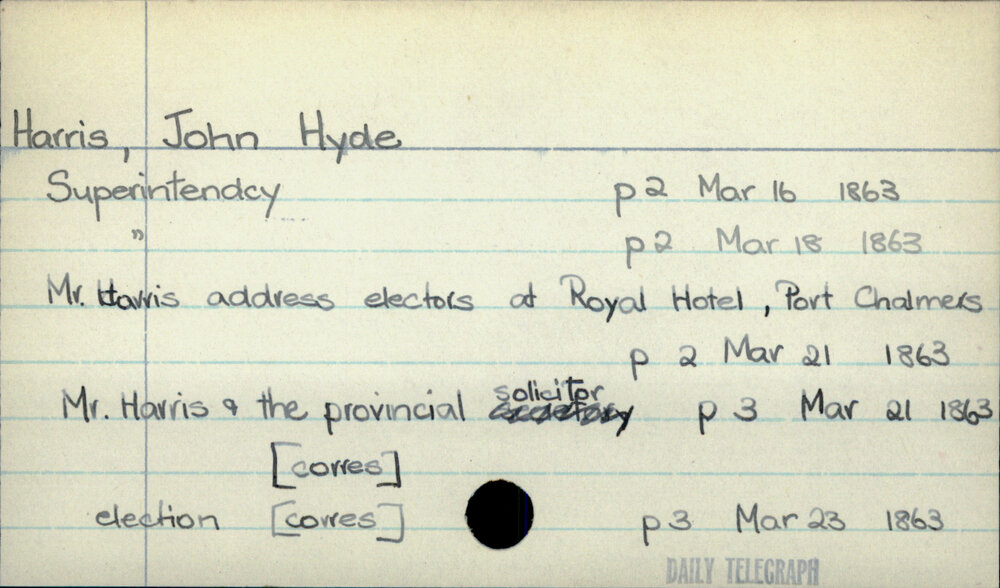 Harris, John Hyde
Superintendcy p 2 Mar 16 1863
" p 2 Mar 18 1863
Mr. Harris address electors at Royal Hotel, Port Chalmers
p 2 Mar 21 1863
Mr. Harris & the provincial solicitor p 3 Mar 21 1863
[corres]
election [corres] p 3 Mar 23 1863
DAILY TELEGRAPH